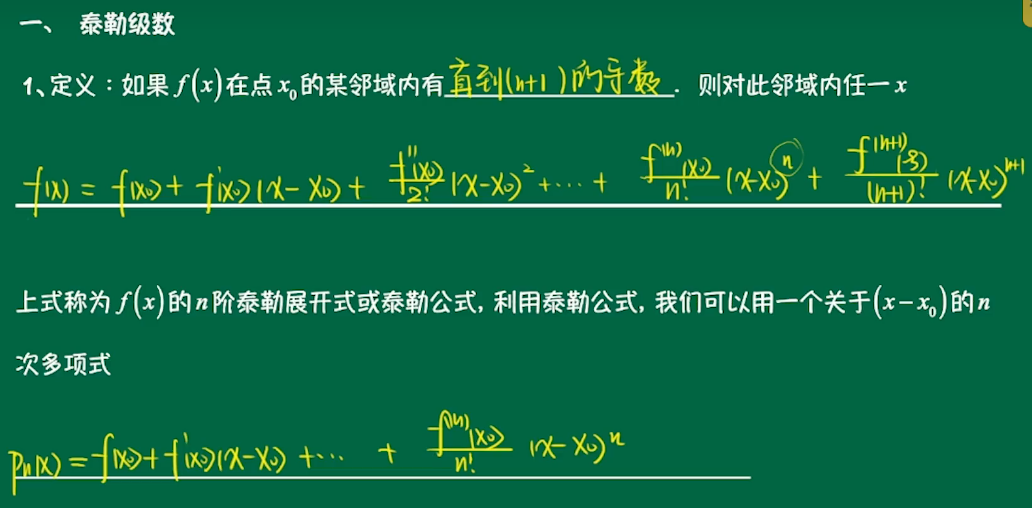 一、 泰勒级数
1、定义：如果 f(x) 在点 x₀ 的某邻域内有 直到(n+1)的导数 . 则对此邻域内任一 x
f(x) = f(x₀) + f'(x₀)(x-x₀) + f''(x₀)/2! (x-x₀)² + ⋯ + f⁽ⁿ⁾(x₀)/n! (x-x₀)ⁿ + f⁽ⁿ⁺¹⁾(ξ)/(n+1)! (x-x₀)ⁿ⁺¹
上式称为 f(x) 的 n 阶泰勒展开式或泰勒公式, 利用泰勒公式, 我们可以用一个关于 (x-x₀) 的 n
次多项式
Pn(x) = f(x₀) + f'(x₀)(x-x₀) + ⋯ + f⁽ⁿ⁾(x₀)/n! (x-x₀)ⁿ